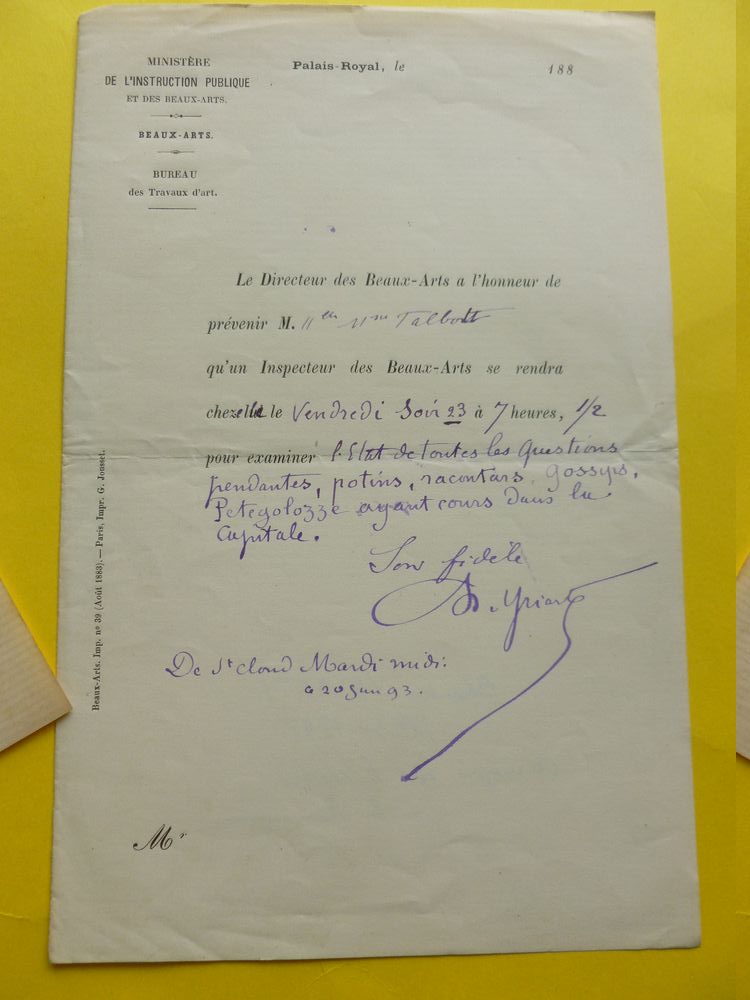 MINISTÈRE
DE L'INSTRUCTION PUBLIQUE
ET DES BEAUX-ARTS.
BEAUX-ARTS.
BUREAU
des Travaux d'art.
Palais-Royal, le 188
Le Directeur des Beaux-Arts a l'honneur de
prévenir M. Talbott
qu'un Inspecteur des Beaux-Arts se rendra
chez elle le Vendredi Soir 23 à 7 heures, 1/2
pour examiner l'Etat de toutes les Questions
pendantes, potins, racontars, Gossyps,
Petegolezze ayant cours dans la
Capitale.
Son fidèle
Ch. Yriarte
De St Cloud Mardi midi.
20 Juin 93.
Mr
Beaux-Arts. Imp. no 39 (Août 1883). — Paris, Impr. G. Jousset.